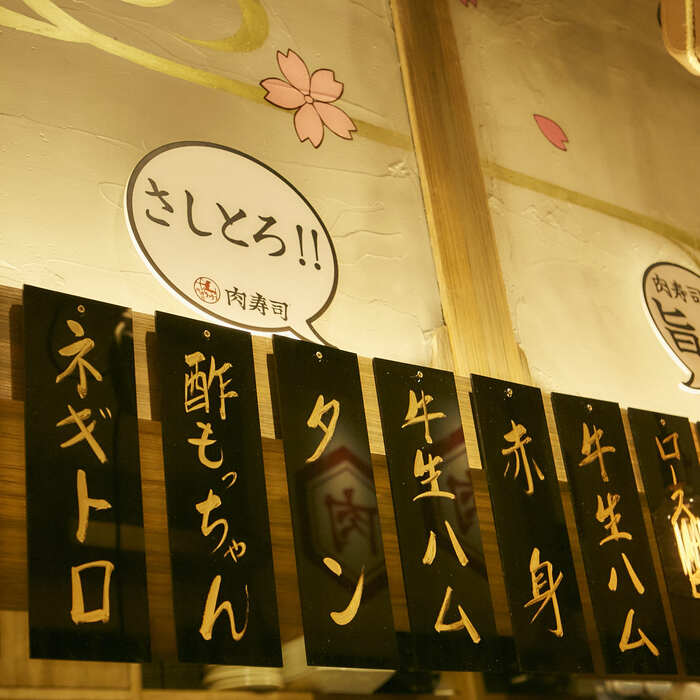 さしとろ!!
肉寿司
肉寿司
旨
ネギトロ
酢もっちゃん
タン
牛生ハム
赤身
牛生ハム
ロース
肉